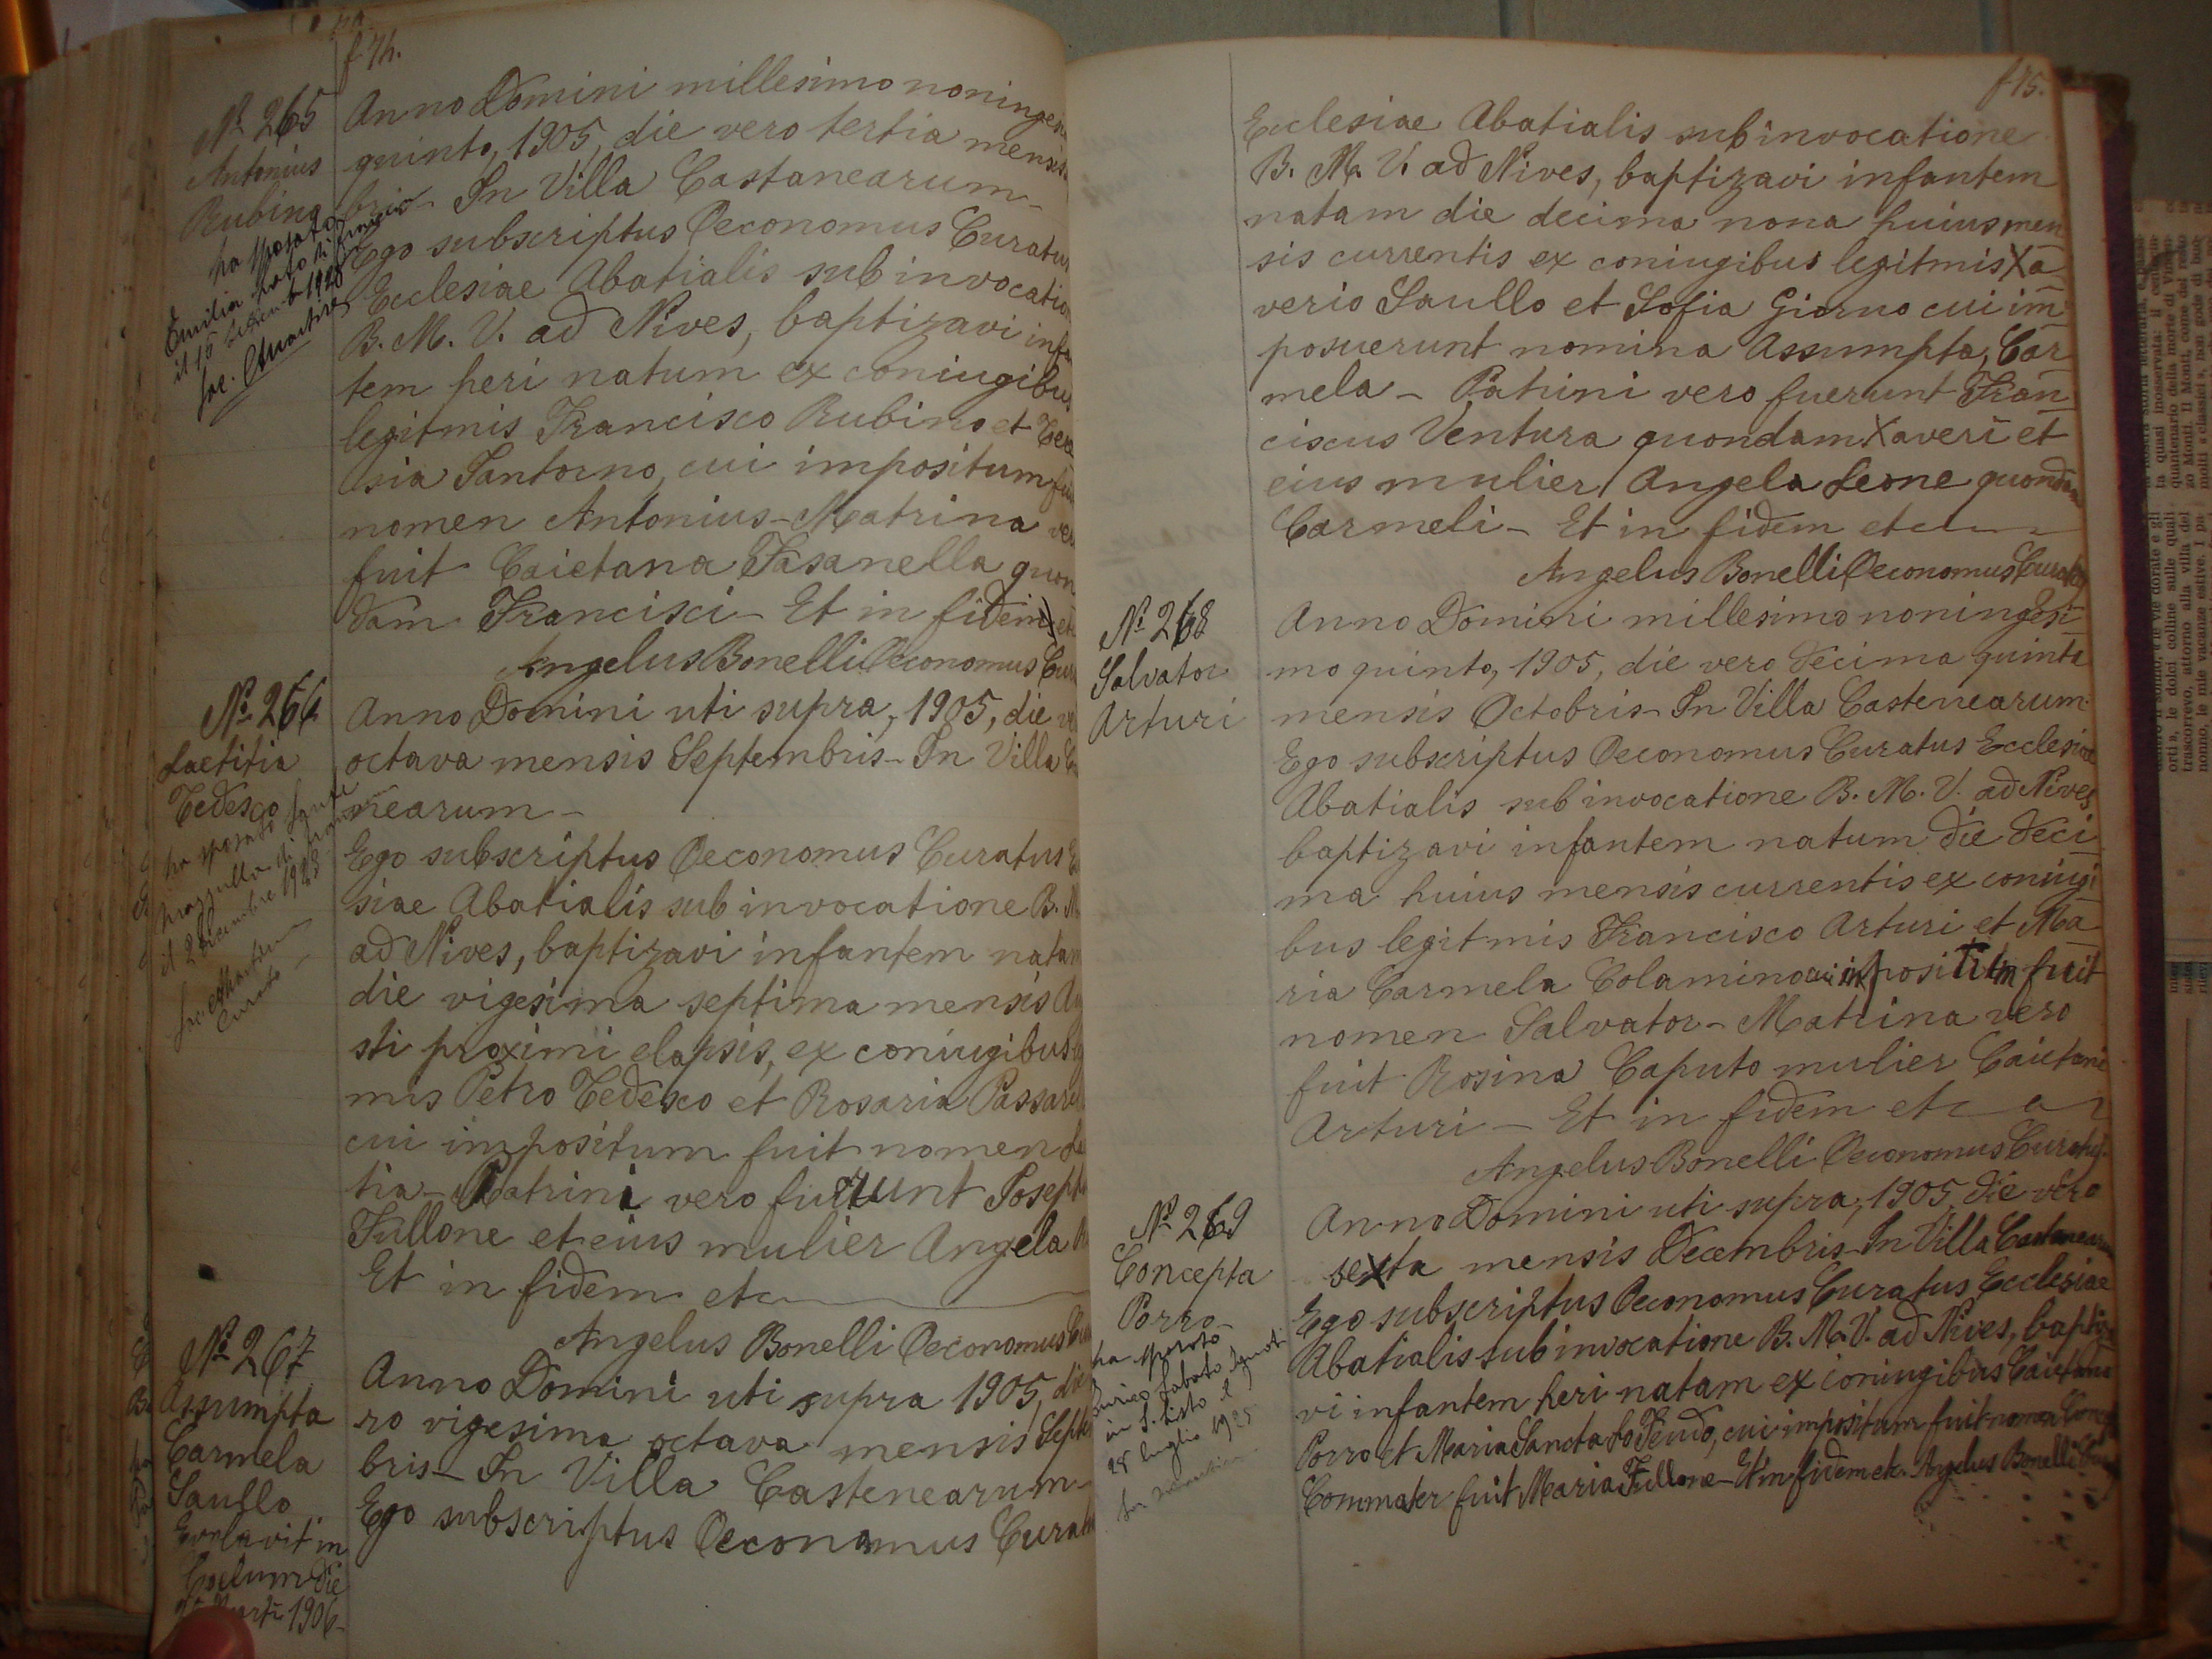 f 74.
Nº 265
Antonius
Rubino
ha sposato
Emilia
il 15 1928
Anno Domini millesimo noninge
quinto, 1905, die vero tertia mensis
bris - In Villa Castanearum -
Ego subscriptus Oeconomus Curatus
Ecclesiae Abatialis sub invocatio
B. M. V. ad Nives, baptizavi infa
tem heri natum ex coniugibus
legitmis Francisco Rubino et Tere
sia Santorno, cui impositum fu
nomen Antonius - Matrina ve
fuit Caietana Fasanella quon
dam Francisci - Et in fidem et
Angelus Bonelli Oeconomus Cur
Nº 266
Laetitia
Tedesco
ha sposato
il 2 dicembre 1928
Curato
Anno Domini uti supra, 1905, die ve
octava mensis Septembris - In Villa
nearum -
Ego subscriptus Oeconomus Curatus
siae Abatialis sub invocatione B. M
ad Nives, baptizavi infantem natam
die vigesima septima mensis Au
sti proximi elapsis, ex coniugibus
mis Petro Tedesco et Rosaria Passare
cui impositum fuit nomen
tia - Patrini vero fuerunt Joseph
Fullone et eius mulier Angela
Et in fidem etc
Angelus Bonelli Oeconomus
Nº 267
Assumpta
Carmela
Saullo
Evolavit in
Coelum die
1906 -
Anno Domini uti supra 1905, die
ro vigesima octava mensis Septe
bris - In Villa Castenearum -
Ego subscriptus Oeconomus Curatu
f 75.
Ecclesiae Abatialis sub invocatione
B. M. V. ad Nives, baptizavi infantem
natam die decima nona huius men
sis currentis ex coniugibus legitmis Xa
verio Saullo et Sofia Giorno cui im
posuerunt nomina Assumpta, Car
mela - Patrini vero fuerunt Fran
ciscus Ventura quondam Xaveri et
eius mulier Angela Leone quondam
Carmeli - Et in fidem etc
Angelus Bonelli Oeconomus Curatus
Nº 268
Salvator
Arturi
Anno Domini millesimo noningesi
mo quinto, 1905, die vero decima quinta
mensis Octobris - In Villa Castenearum -
Ego subscriptus Oeconomus Curatus Ecclesiae
Abatialis sub invocatione B. M. V. ad Nives
baptizavi infantem natum die deci
ma huius mensis currentis ex coniugi
bus legitmis Francisco Arturi et Ma
ria Carmela Colamino cui impositum fuit
nomen Salvator - Matrina vero
fuit Rosina Caputo mulier Caietani
Arturi - Et in fidem etc
Angelus Bonelli Oeconomus Curatus
Nº 269
Concepta
Porro -
ha sposato
in S. Sisto il
28 luglio 1925
Anno Domini uti supra, 1905, die vero
sexta mensis Decembris - In Villa Castanearum
Ego subscriptus Oeconomus Curatus Ecclesiae
Abatialis sub invocatione B. M. V. ad Nives, baptiza
vi infantem heri natam ex coniugibus Caietano
Porro et Maria Sancta Lo Feudo, cui impositum fuit nomen Concep
Commater fuit Maria Fullone - Et in fidem etc. Angelus Bonelli